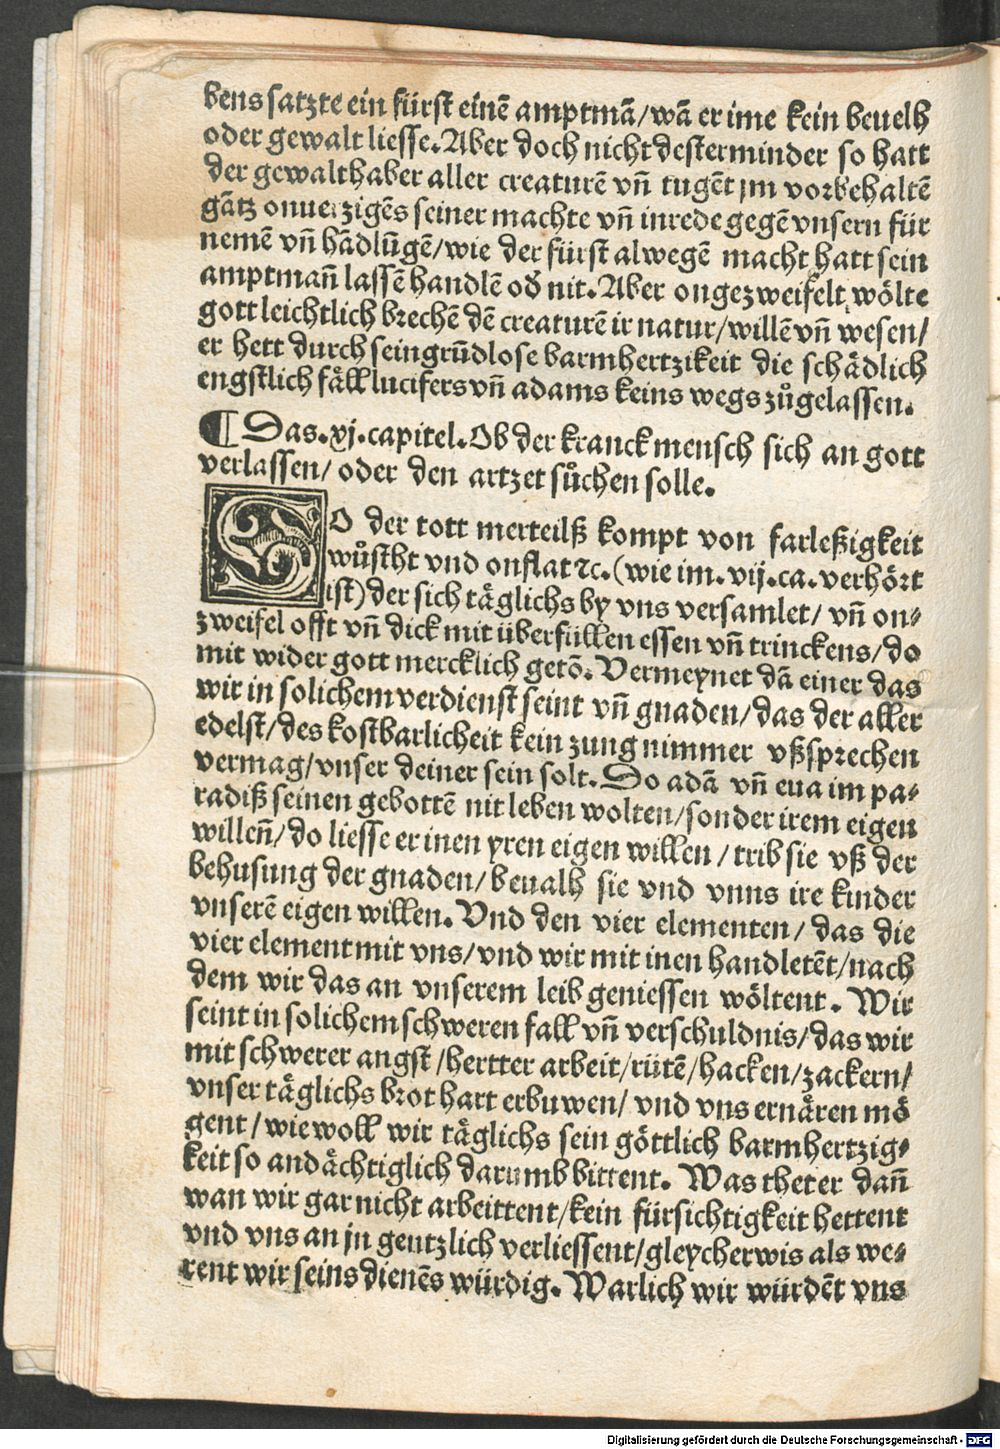 bens satzte ein fürst einē amptmā/wā er ime kein beuelh
oder gewalt liesse. Aber doch nicht desterminder so hatt
der gewalthaber aller creaturē vñ tugēt jm vorbehaltē
gātz onuerzigēs seiner machte vñ inrede gegē vnsern für
nemē vñ hādlūgē/wie der fürst alwegē macht hatt sein
amptmañ lassē handlē od̄ nit. Aber ongezweifelt wölte
gott leichtlich brechē dē creaturē ir natur/willē vñ wesen/
er hett durch sein grūdlose barmhertzikeit die schådlich
engstlich fåll lucifers vñ adams keins wegs zůgelassen.
¶ Das .xj. capitel. Ob der kranck mensch sich an gott
verlassen/ oder den artzet sůchen solle.
SO der tott merteilß kompt von farleßigkeit
wůstht vnd onflat ⁊c. (wie im .vij. ca. verhört
ist) der sich tåglichs by vns versamlet/ vñ on⸗
zweifel offt vñ dick mit überfüllen essen vñ trinckens/do
mit wider gott mercklich getō. Vermeynet dā einer das
wir in solichem verdienst seint vñ gnaden/das der aller
edelst/des kostbarlicheit kein zung nimmer vßsprechen
vermag/vnser deiner sein solt. So adā vñ eua im pa⸗
radiß seinen gebottē nit leben wolten/sonder irem eigen
willeñ/do liesse er inen yren eigen willen/trib sie vß der
behusung der gnaden/beualh sie vnd vnns ire kinder
vnserē eigen willen. Vnd den vier elementen/ das die
vier element mit vns/vnd wir mit inen handletēt/nach
dem wir das an vnserem leib geniessen wöltent. Wir
seint in solichem schweren fall vñ verschuldnis/das wir
mit schwerer angst/hertter arbeit/rütē/hacken/zackern/
vnser tåglichs brot hart erbuwen/ vnd vns ernåren mö
gent/wiewoll wir tåglichs sein göttlich barmhertzig⸗
keit so andåchtiglich darumb bittent. Was thet er dañ
wan wir gar nicht arbeittent/kein fürsichtigkeit hettent
vnd vns an jn gentzlich verliessent/gleycherwis als we⸗
rent wir seins dienēs würdig. Warlich wir würdēt vns
Digitalisierung gefördert durch die Deutsche Forschungsgemeinschaft - DFG